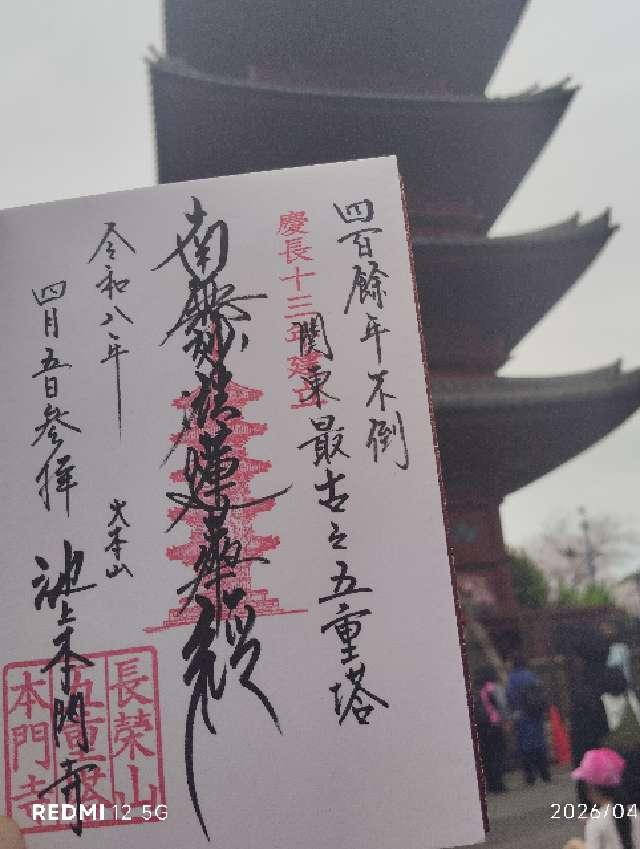 四百餘年不倒
関東最古之五重塔
慶長十三年建立
南無妙法蓮華経
令和八年
四月五日参拝
大本山
池上本門寺
長荣山
五重塔
本門寺
REDMI 12 5G
2026/04